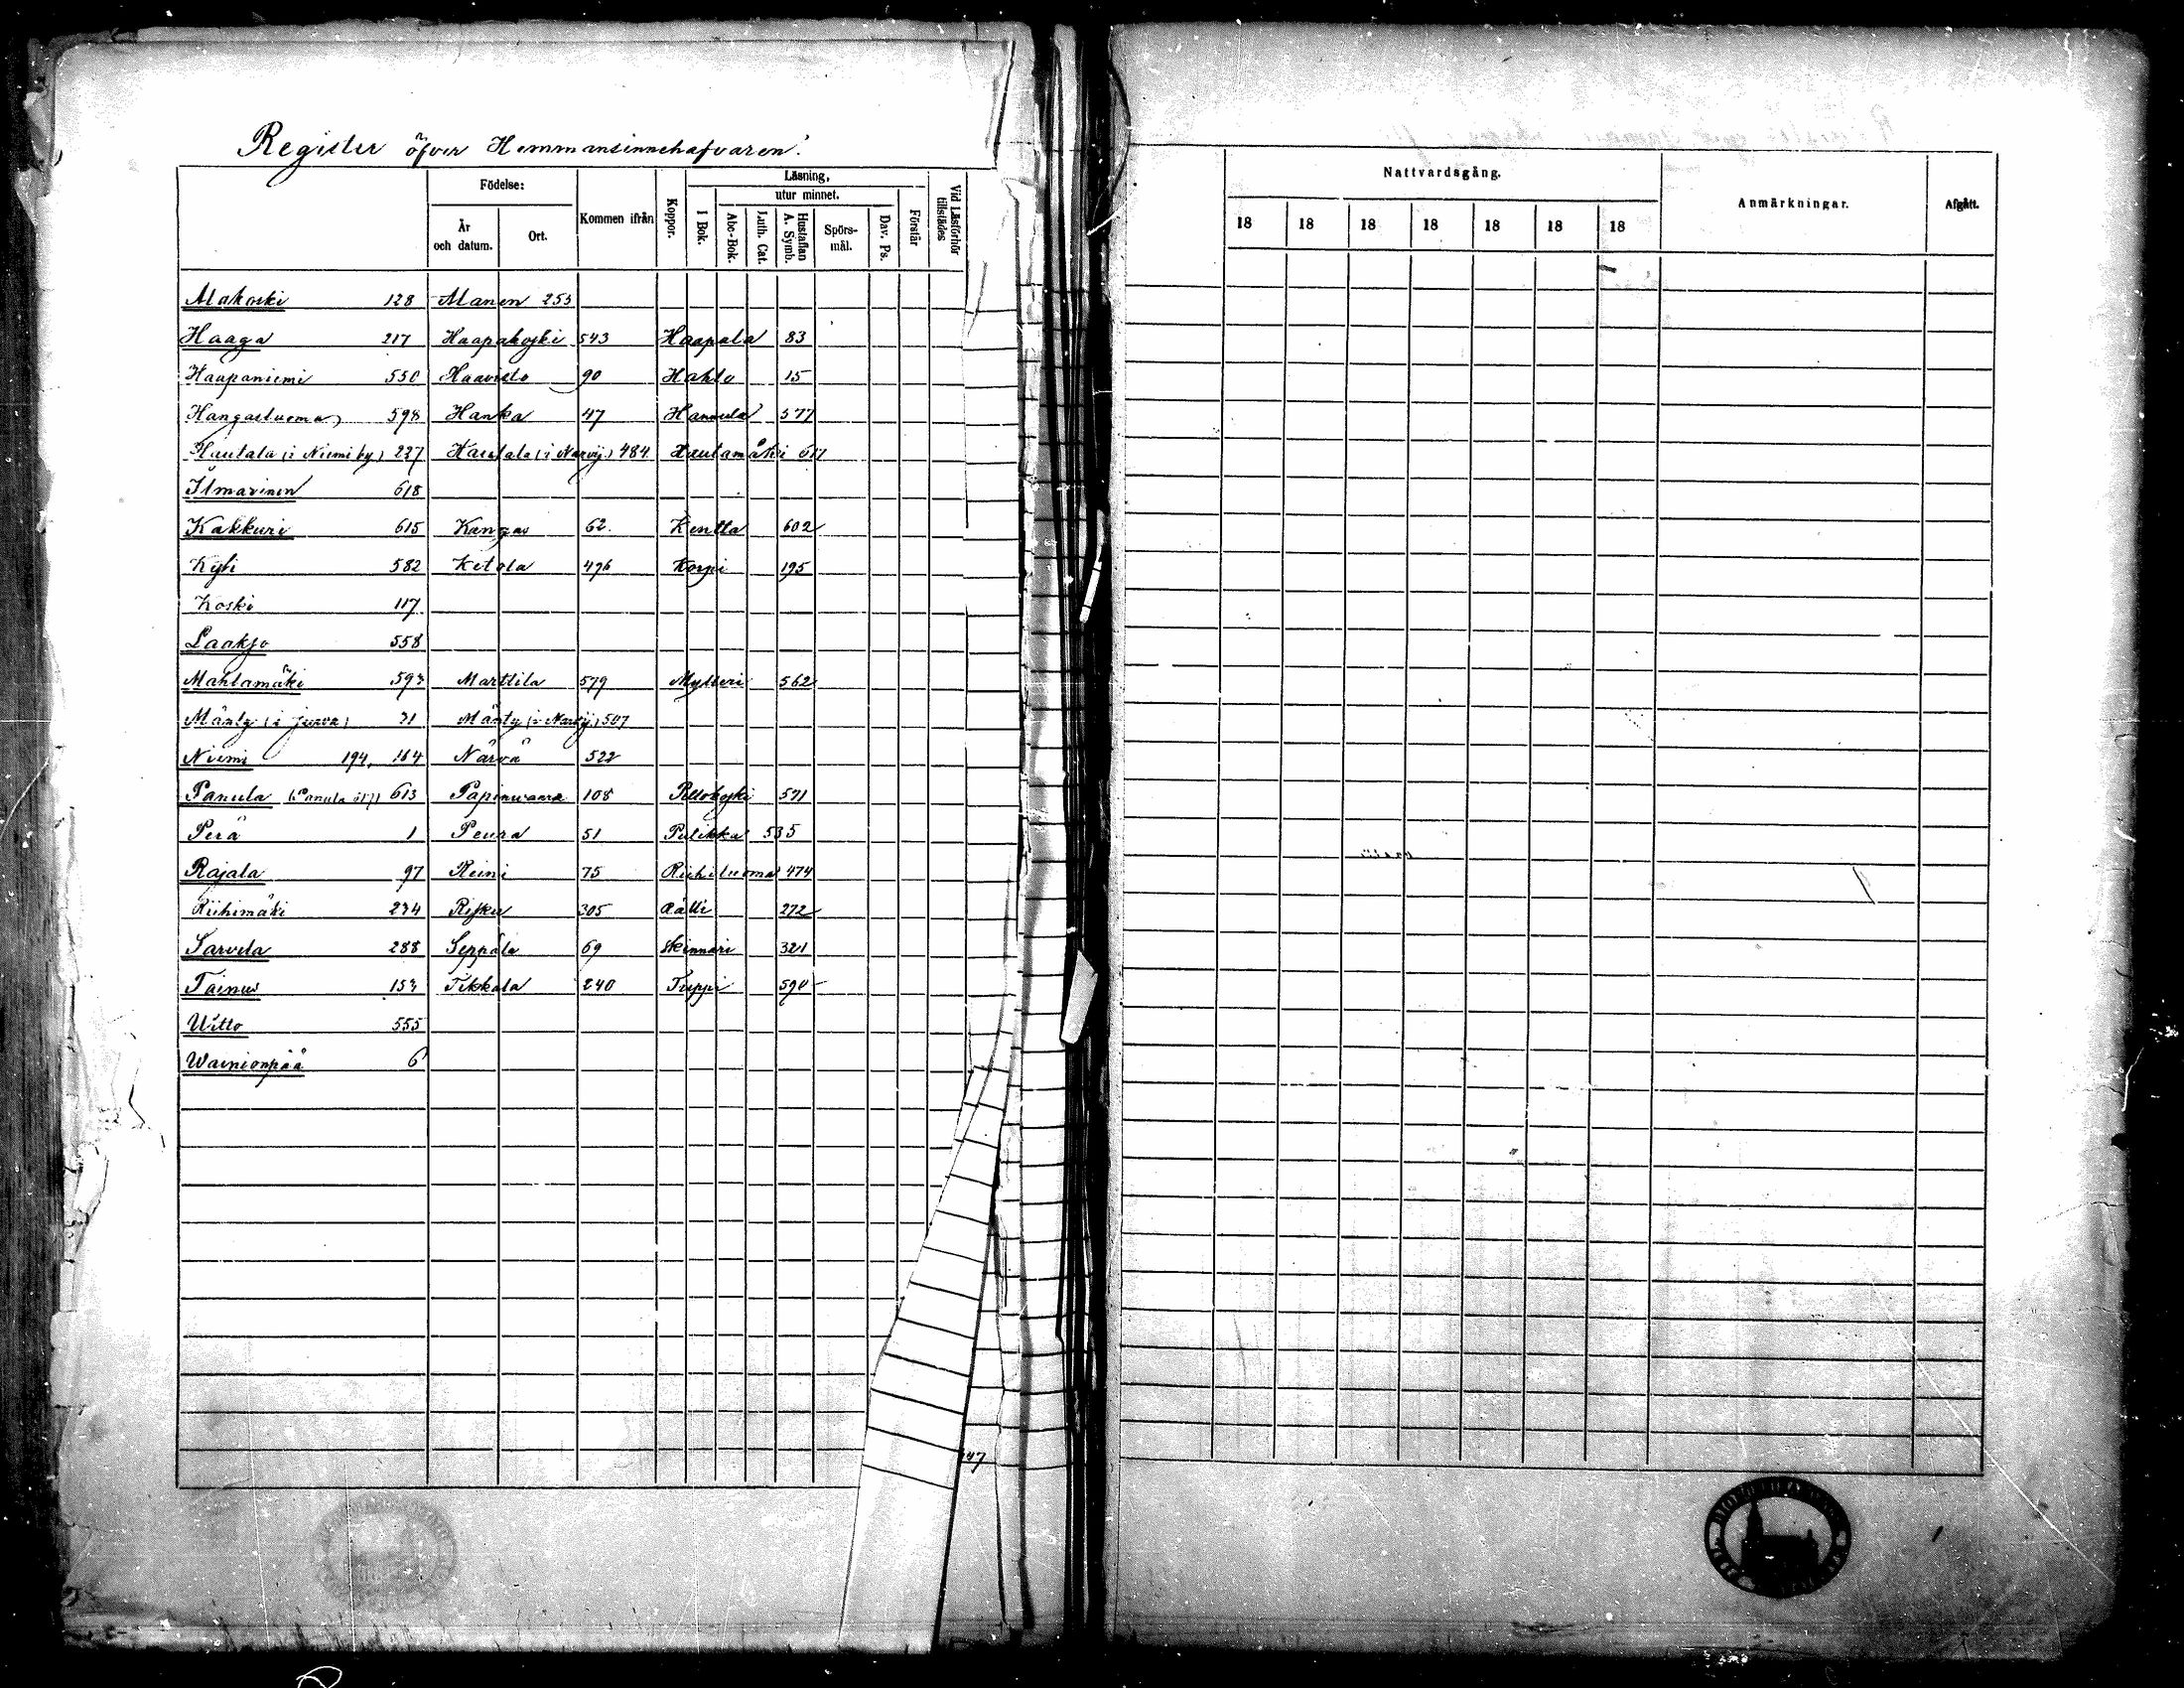 Register öfver Hemmansinnehafvaren.
Födelse:
År och datum.
Ort.
Kommen ifrån
Koppor.
Läsning,
utur minnet.
I Bok.
Abc-Bok.
Luth. Cat.
Hustaflan A. Symb.
Spörsmål.
Dav. Ps.
Förstår
Vid Läsförhör tillstädes
Nattvardsgång.
18 18 18 18 18 18 18
Anmärkningar.
Afgått.
Alakoski 128 Alanen 253
Haaga 217 Haapakoski 543 Haapala 83
Haapaniemi 550 Haavisto 90 Hahto 15
Hangasluoma 598 Hanka 47 Hannula 577
Hautala (i Niemi by) 237 Hautala (i Narvij.) 484 Hautamäki 617
Ilmarinen 618
Kakkuri 615 Kangas 62. Kentta 602
Kesti 582 Ketola 496 Korpi 195
Koski 117
Laakso 558
Mahlamäki 593 Marttila 579 Mylleri 562
Mänty (i Jurva) 31 Mänty (i Narvij.) 507
Niemi 194, 164 Närvä 522
Panula 613 108 571
Perä 1 Peura 51 Pulikka 535
Rajala 97 Reini 75 Riihiluoma 474
Riihimäki 234 Risku 305 Rälli 272
Sarvela 288 Seppälä 69 Skinnari 321
Tainus 153 Tikkala 240 Tuppi 590
Uitto 555
Wainionpää 6
47